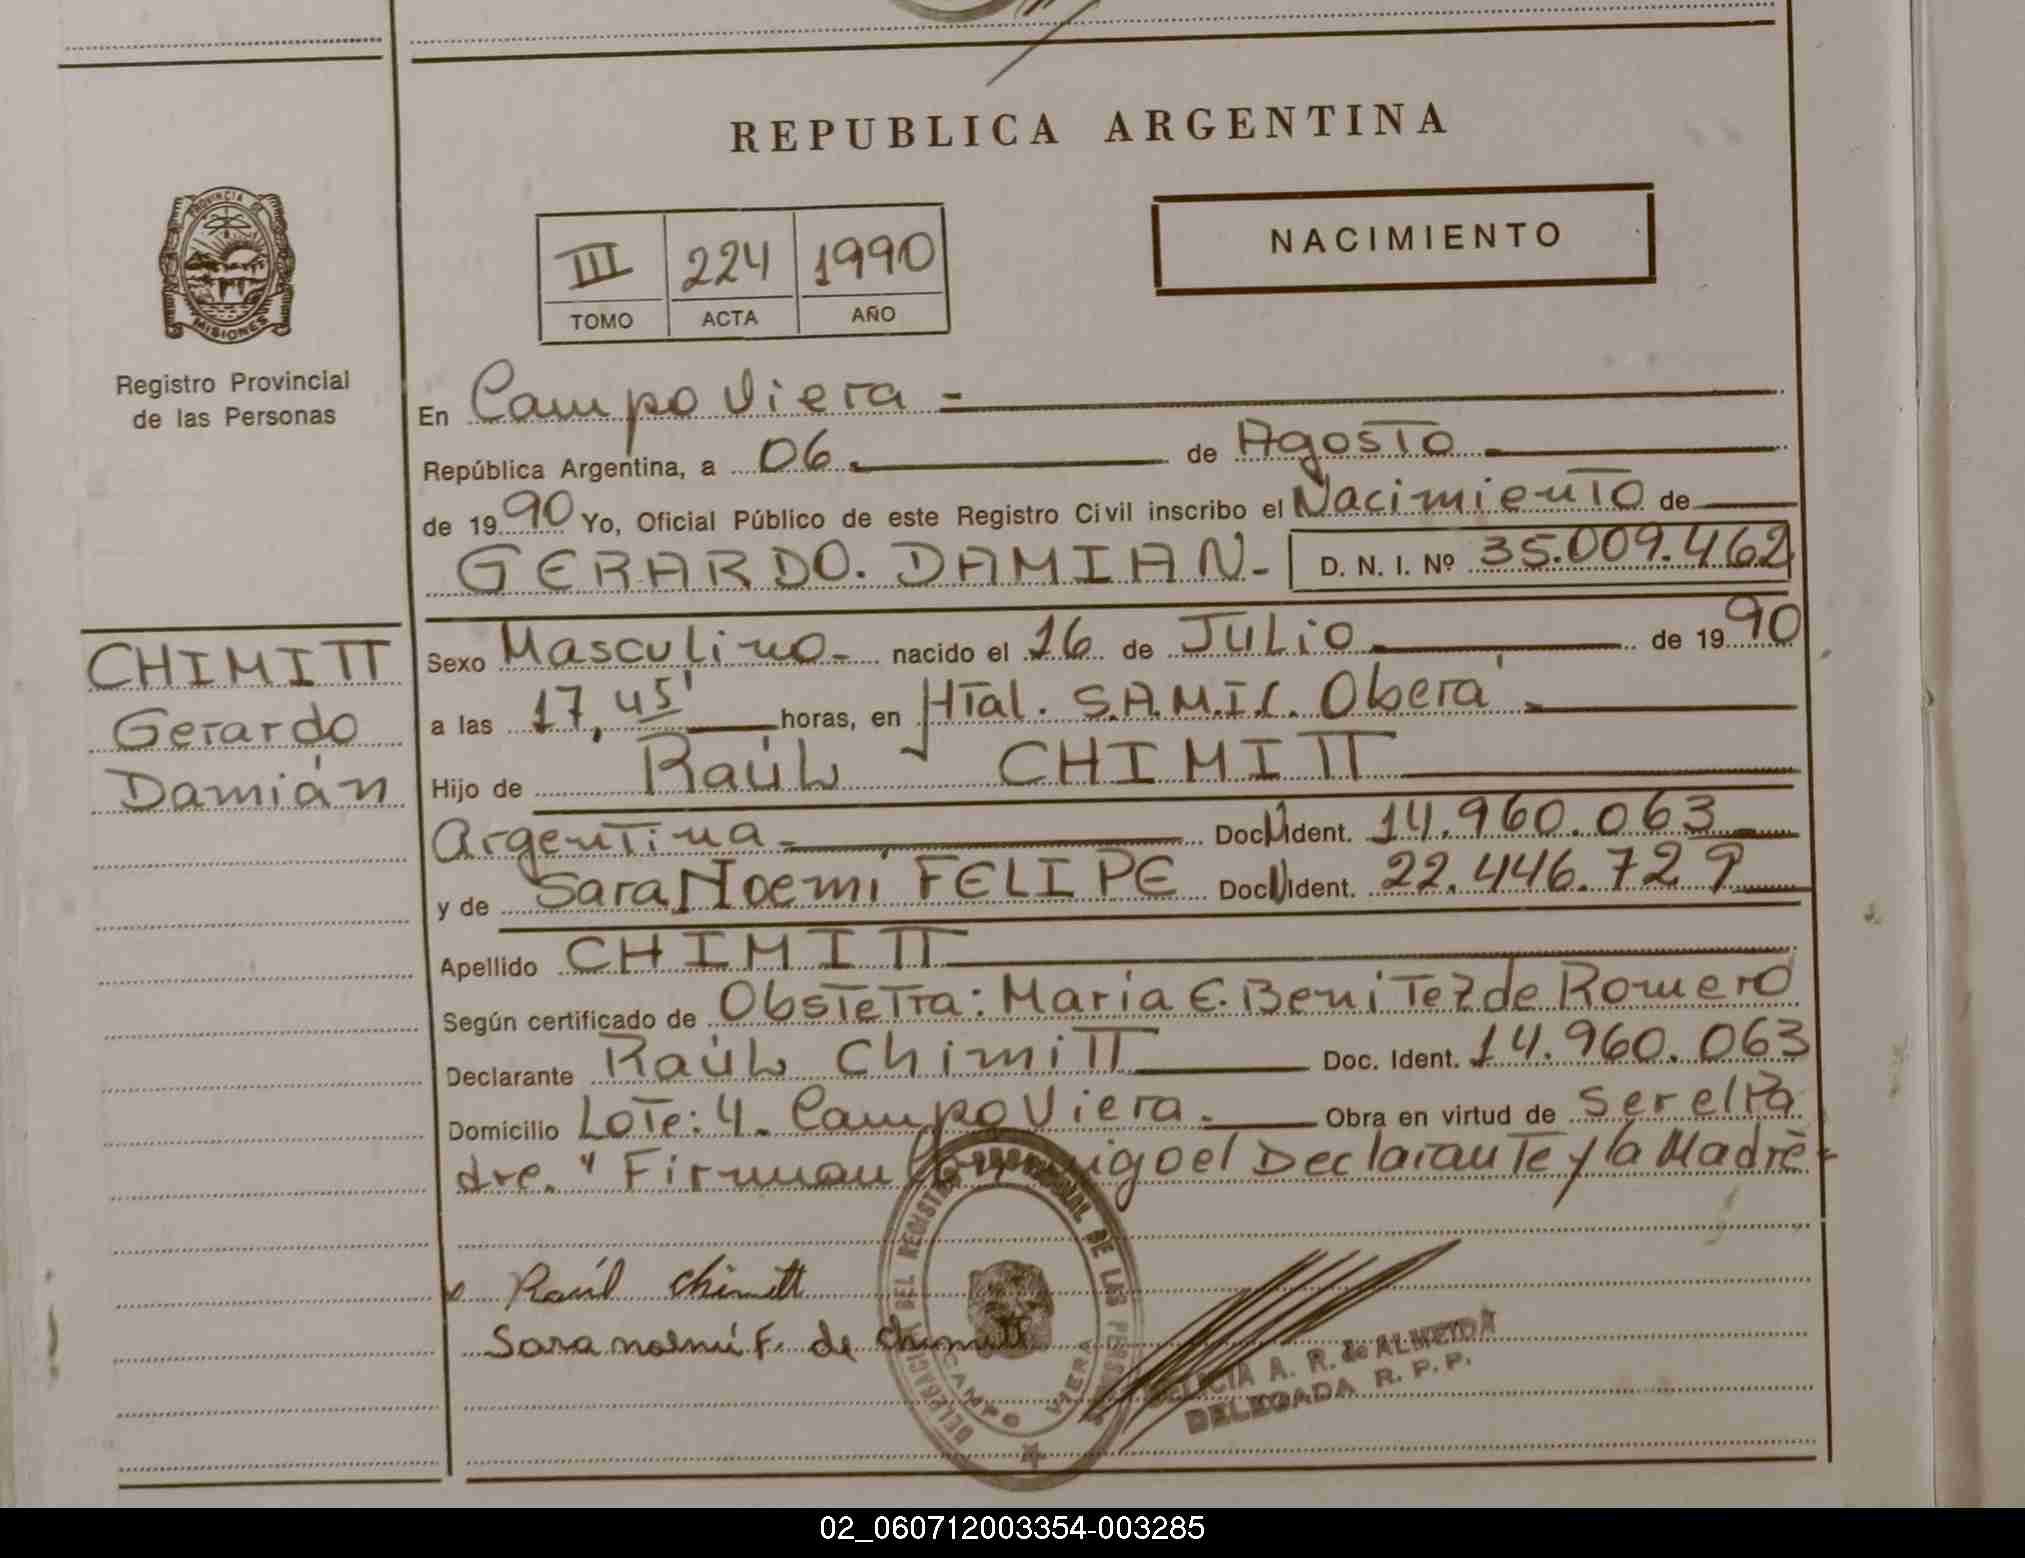 REPUBLICA ARGENTINA
PROVINCIA DE
MISIONES
Registro Provincial
de las Personas
III 224 1990
TOMO ACTA AÑO
NACIMIENTO
En Campo Viera -
República Argentina, a 06. de Agosto
de 1990 Yo, Oficial Público de este Registro Civil inscribo el Nacimiento de
GERARDO. DAMIAN - D. N. I. Nº 35.009.462
CHIMITT
Gerardo
Damián
Sexo Masculino - nacido el 16 de JULIO de 1990
a las 17,45' horas, en Htal. S.A.M.I.C. Oberá
Hijo de Raúl CHIMITT
Argentina - Doc. Ident. 14.960.063
y de Sara Noemi FELIPE Doc. Ident. 22.446.729
Apellido CHIMITT
Según certificado de Obstetra: Maria E. Benitez de Romero
Declarante Raúl Chimitt Doc. Ident. 14.960.063
Domicilio Lote: 4. Campo Viera. Obra en virtud de Ser el Pa
dre. " Firman conmigo el Declarante y la Madre -
Raúl Chimitt
Sara noemí F. de Chimitt
DELEGACION DEL REGISTRO PROVINCIAL DE LAS PERSONAS
CAMPO VIERA
A. R. de ALMEIDA
DELEGADA R. P. P.
02_060712003354-003285